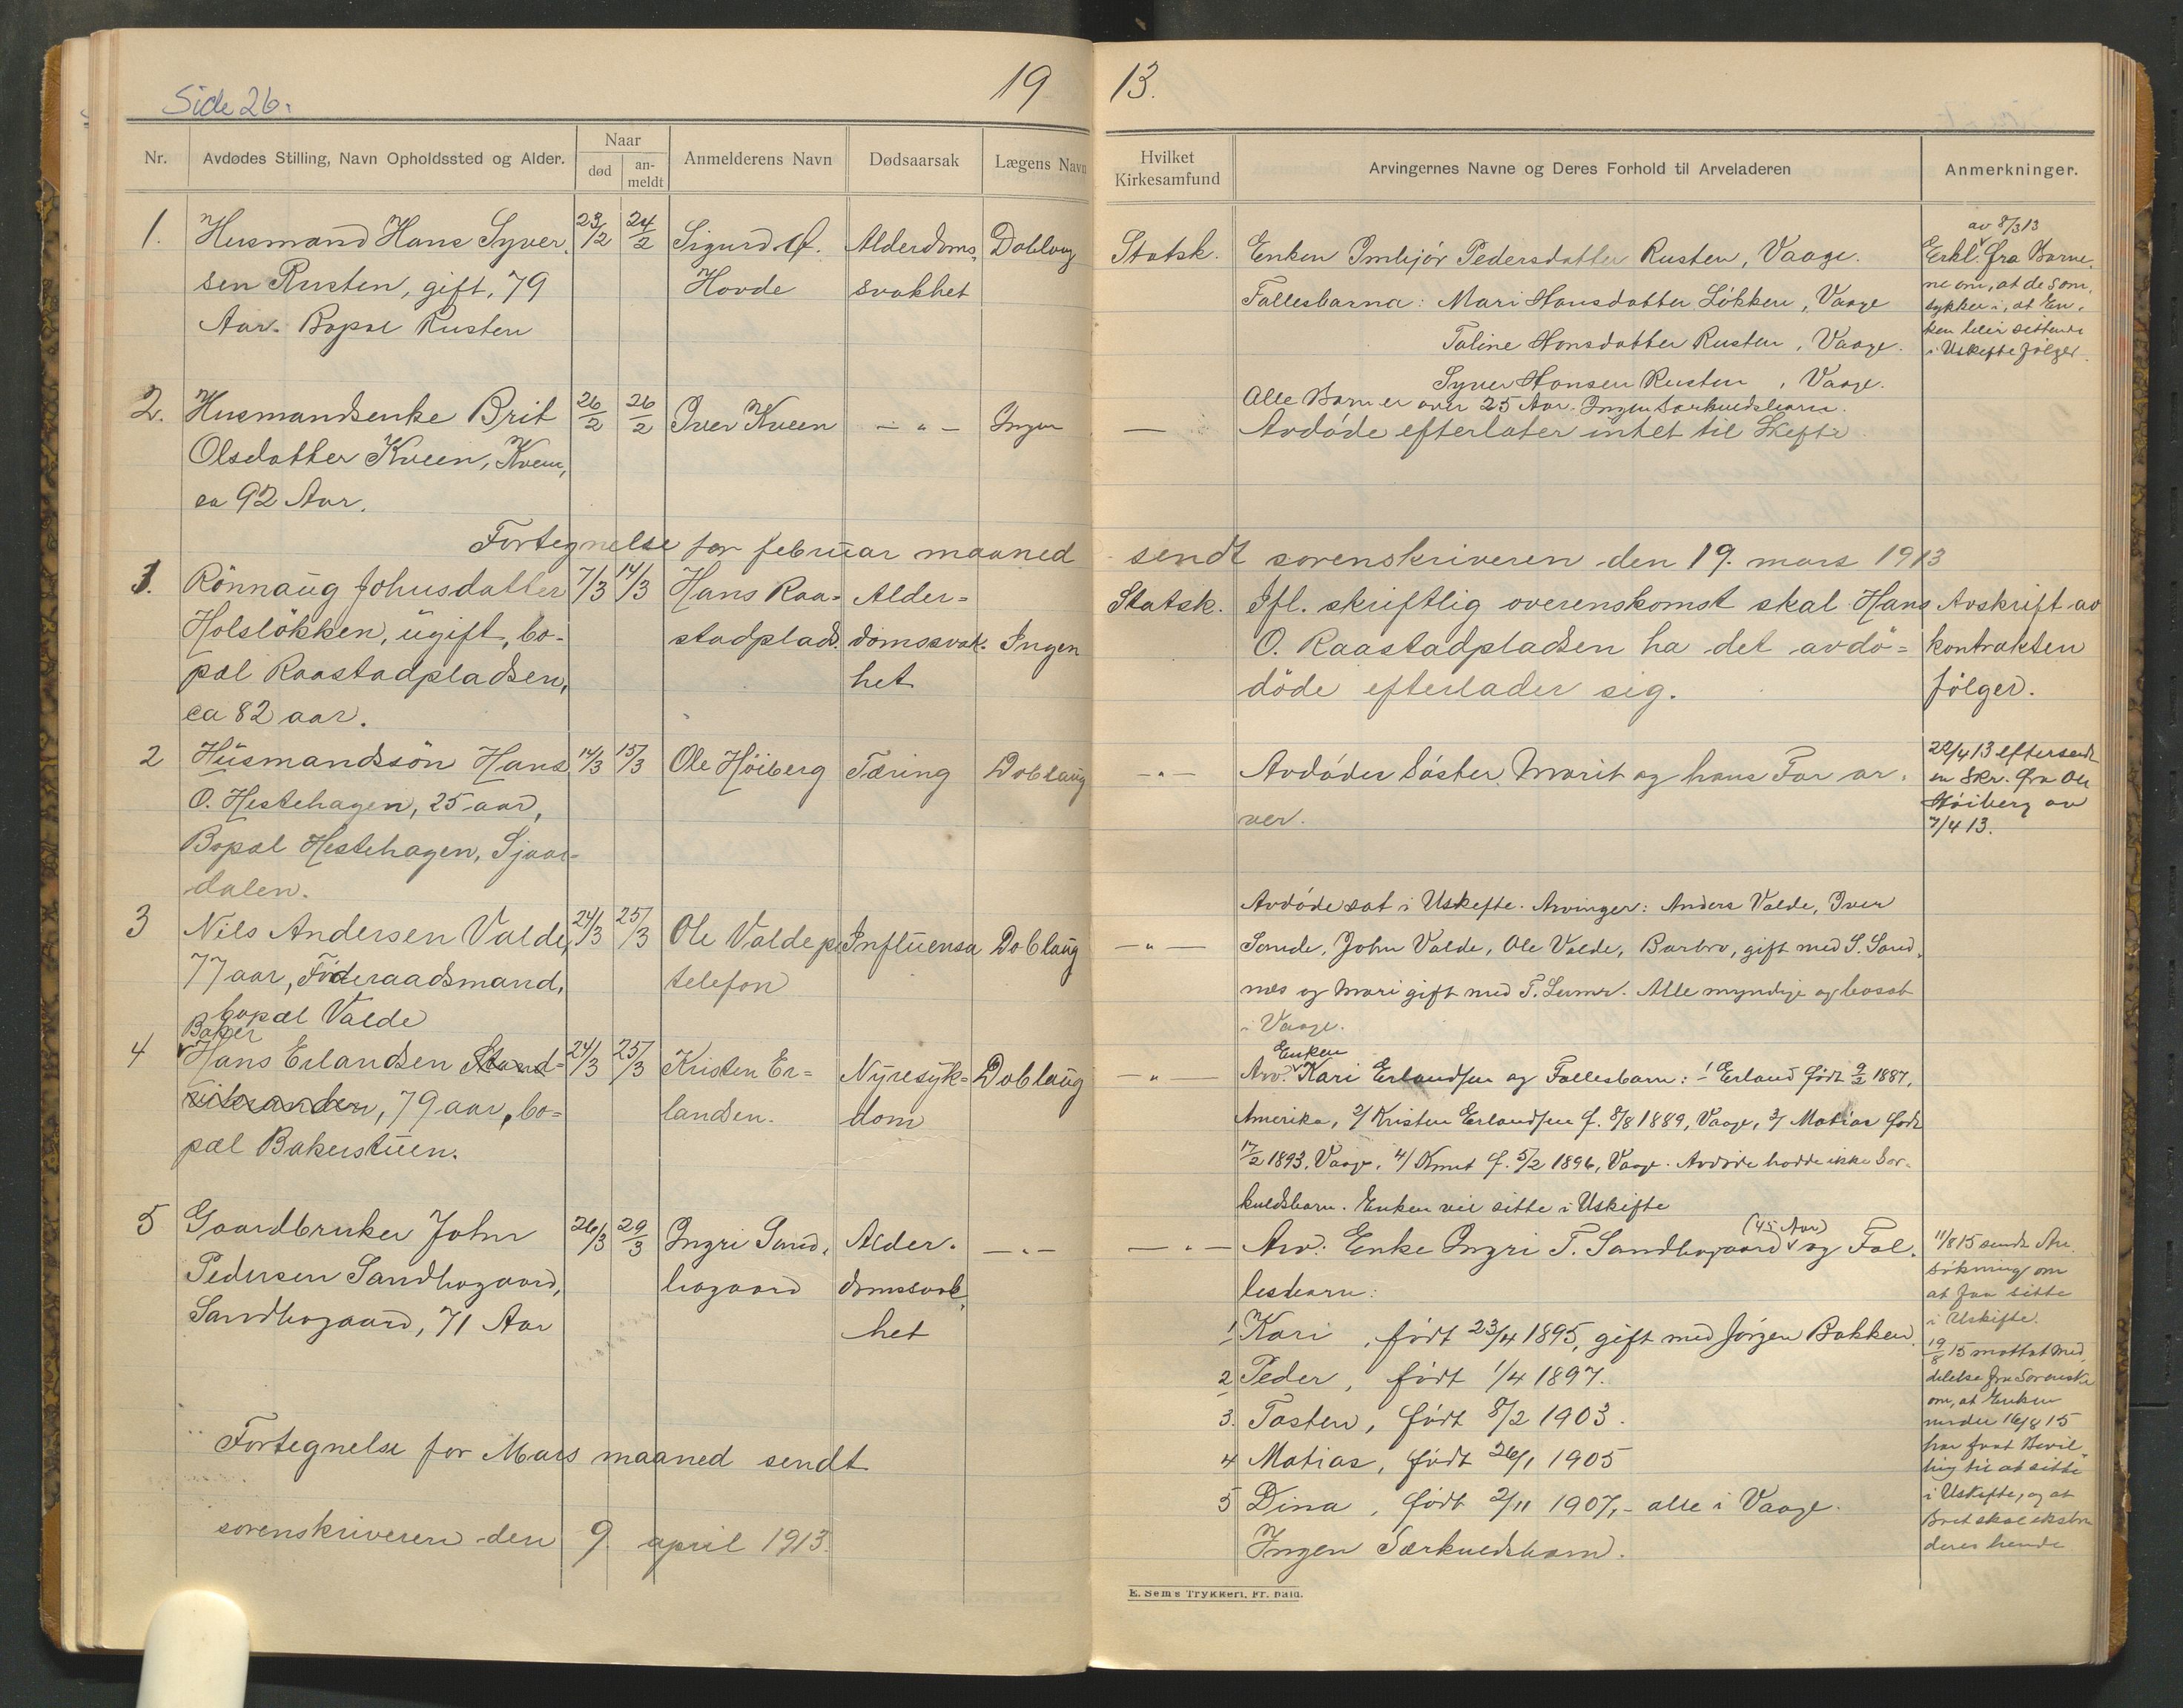 Side 26.
19 13.
Nr.
Avdødes Stilling, Navn Opholdssted og Alder.
Naar
død
an-
meldt
Anmelderens Navn
Dødsaarsak
Lægens Navn
Hvilket
Kirkesamfund
Arvingernes Navne og Deres Forhold til Arveladeren
Anmerkninger.
1.
Husmand Hans Syver-
sen Rusten, gift, 79
Aar. Bopæl Rusten
23/2
24/2
Sigurd
Hovde
Alderdoms-
svakhet
Doblaug
Statsk.
Enken Imbjør Pedersdatter Rusten, Vaage.
Fællesbarna: Mari Hansdatter Løkken, Vaage
Taline Hansdatter Rusten, Vaage.
Syver Hansen Rusten, Vaage.
Alle Barn er over 25 Aar. Ingen Særkuldsbarn.
av 8/3 13
Erkl. fra Barne-
ne om, at de sam-
tykker i, at En-
ken blir sittende
i Uskifte følger.
2.
Husmandsenke Brit
Olsdatter Kveen, Kveen,
ca 92 Aar.
26/2
26/2
Iver Kveen
— " —
Ingen
—
Avdøde efterlater intet til Skefte
Fortegnelse for februar maaned sendt sorenskriveren den 19. mars 1913
1.
Rönnaug Johnsdatter
Holslökken, ugift, bo-
pæl Raastadpladsen,
ca 82 aar.
7/3
14/3
Hans Raa-
stadplads.
Alder-
domssvak-
het
Ingen
Statsk.
Ifl. skriftlig overenskomst skal Hans
O. Raastadpladsen ha det avdö-
döde efterlader sig.
Avskrift av
kontrakten
følger.
2
Husmandssön Hans
O. Hestehagen, 25 aar,
Bopæl Hestehagen, Sjaar-
dalen.
14/3
15/3
Ole Höiberg
Tæring
Doblaug
— " —
Avdødes Søster Marit og hans Far ar-
ver.
22/4 13 eftersendt
en Skr. fra Ole
Høiberg av
7/4 13.
3
Nils Andersen Valde,
77 aar, Föderaadsmand,
bopæl Valde
24/3
25/3
Ole Valde pr
telefon
Influensa
Doblaug
— " —
Avdøde sat i Uskefte. Arvinger: Anders Valde, Iver
Sande, John Valde, Ole Valde, Barbro, gift med S. Sand-
nes og Mari gift med T. . Alle myndige og bosat
i Vaage.
4
Baker
Hans Erlandsen
, 79 aar, bo-
pæl Bakerstuen.
24/3
25/3
Kristen Er-
landsen.
Nyresyk-
dom
Doblaug
— " —
Enken
Arv. Kari Erlandsen og Fællesbarn: 1/ Erland født 9/2 1887,
Amerika, 2/ Kristen Erlandsen f. 8/8 1889, Vaage, 3/ Matias født
17/2 1893, Vaage, 4/ Knut f. 5/2 1896, Vaage. Avdøde hadde ikke Sær-
kuldsbarn. Enken vil sitte i Uskifte
5
Gaardbruker John
Pedersen Sandbogaard,
Sandbogaard, 71 Aar
26/3
29/3
Ingri Sand-
bogaard
Alder-
domssvak-
het
— " —
— " —
Arv: Enke Ingri T. Sandbogaard (45 Aar) og Fæl-
lesbarn:
1 Kari, født 23/4 1895, gift med Jørgen Bakken
2 Peder, født 1/4 1897.
3. Tosten, født 8/2 1903.
4 Matias, født 26/1 1905
5 Dina, født 2/11 1907, - alle i Vaage.
Ingen Særkuldsbarn.
11/8 15 sendt An-
søkning om
at faa sitte
i Uskifte.
19/8 15 mottat med-
delelse fra Sorenskr.
om, at Enken
under 16/8 15
har faat Bevil-
ling til at sitte
i Uskifte, og at
Bort skal
deres hende
Fortegnelse for Mars maaned sendt
sorenskriveren den 9. april 1913.
E. Sem's Trykkeri, Fr. hald.